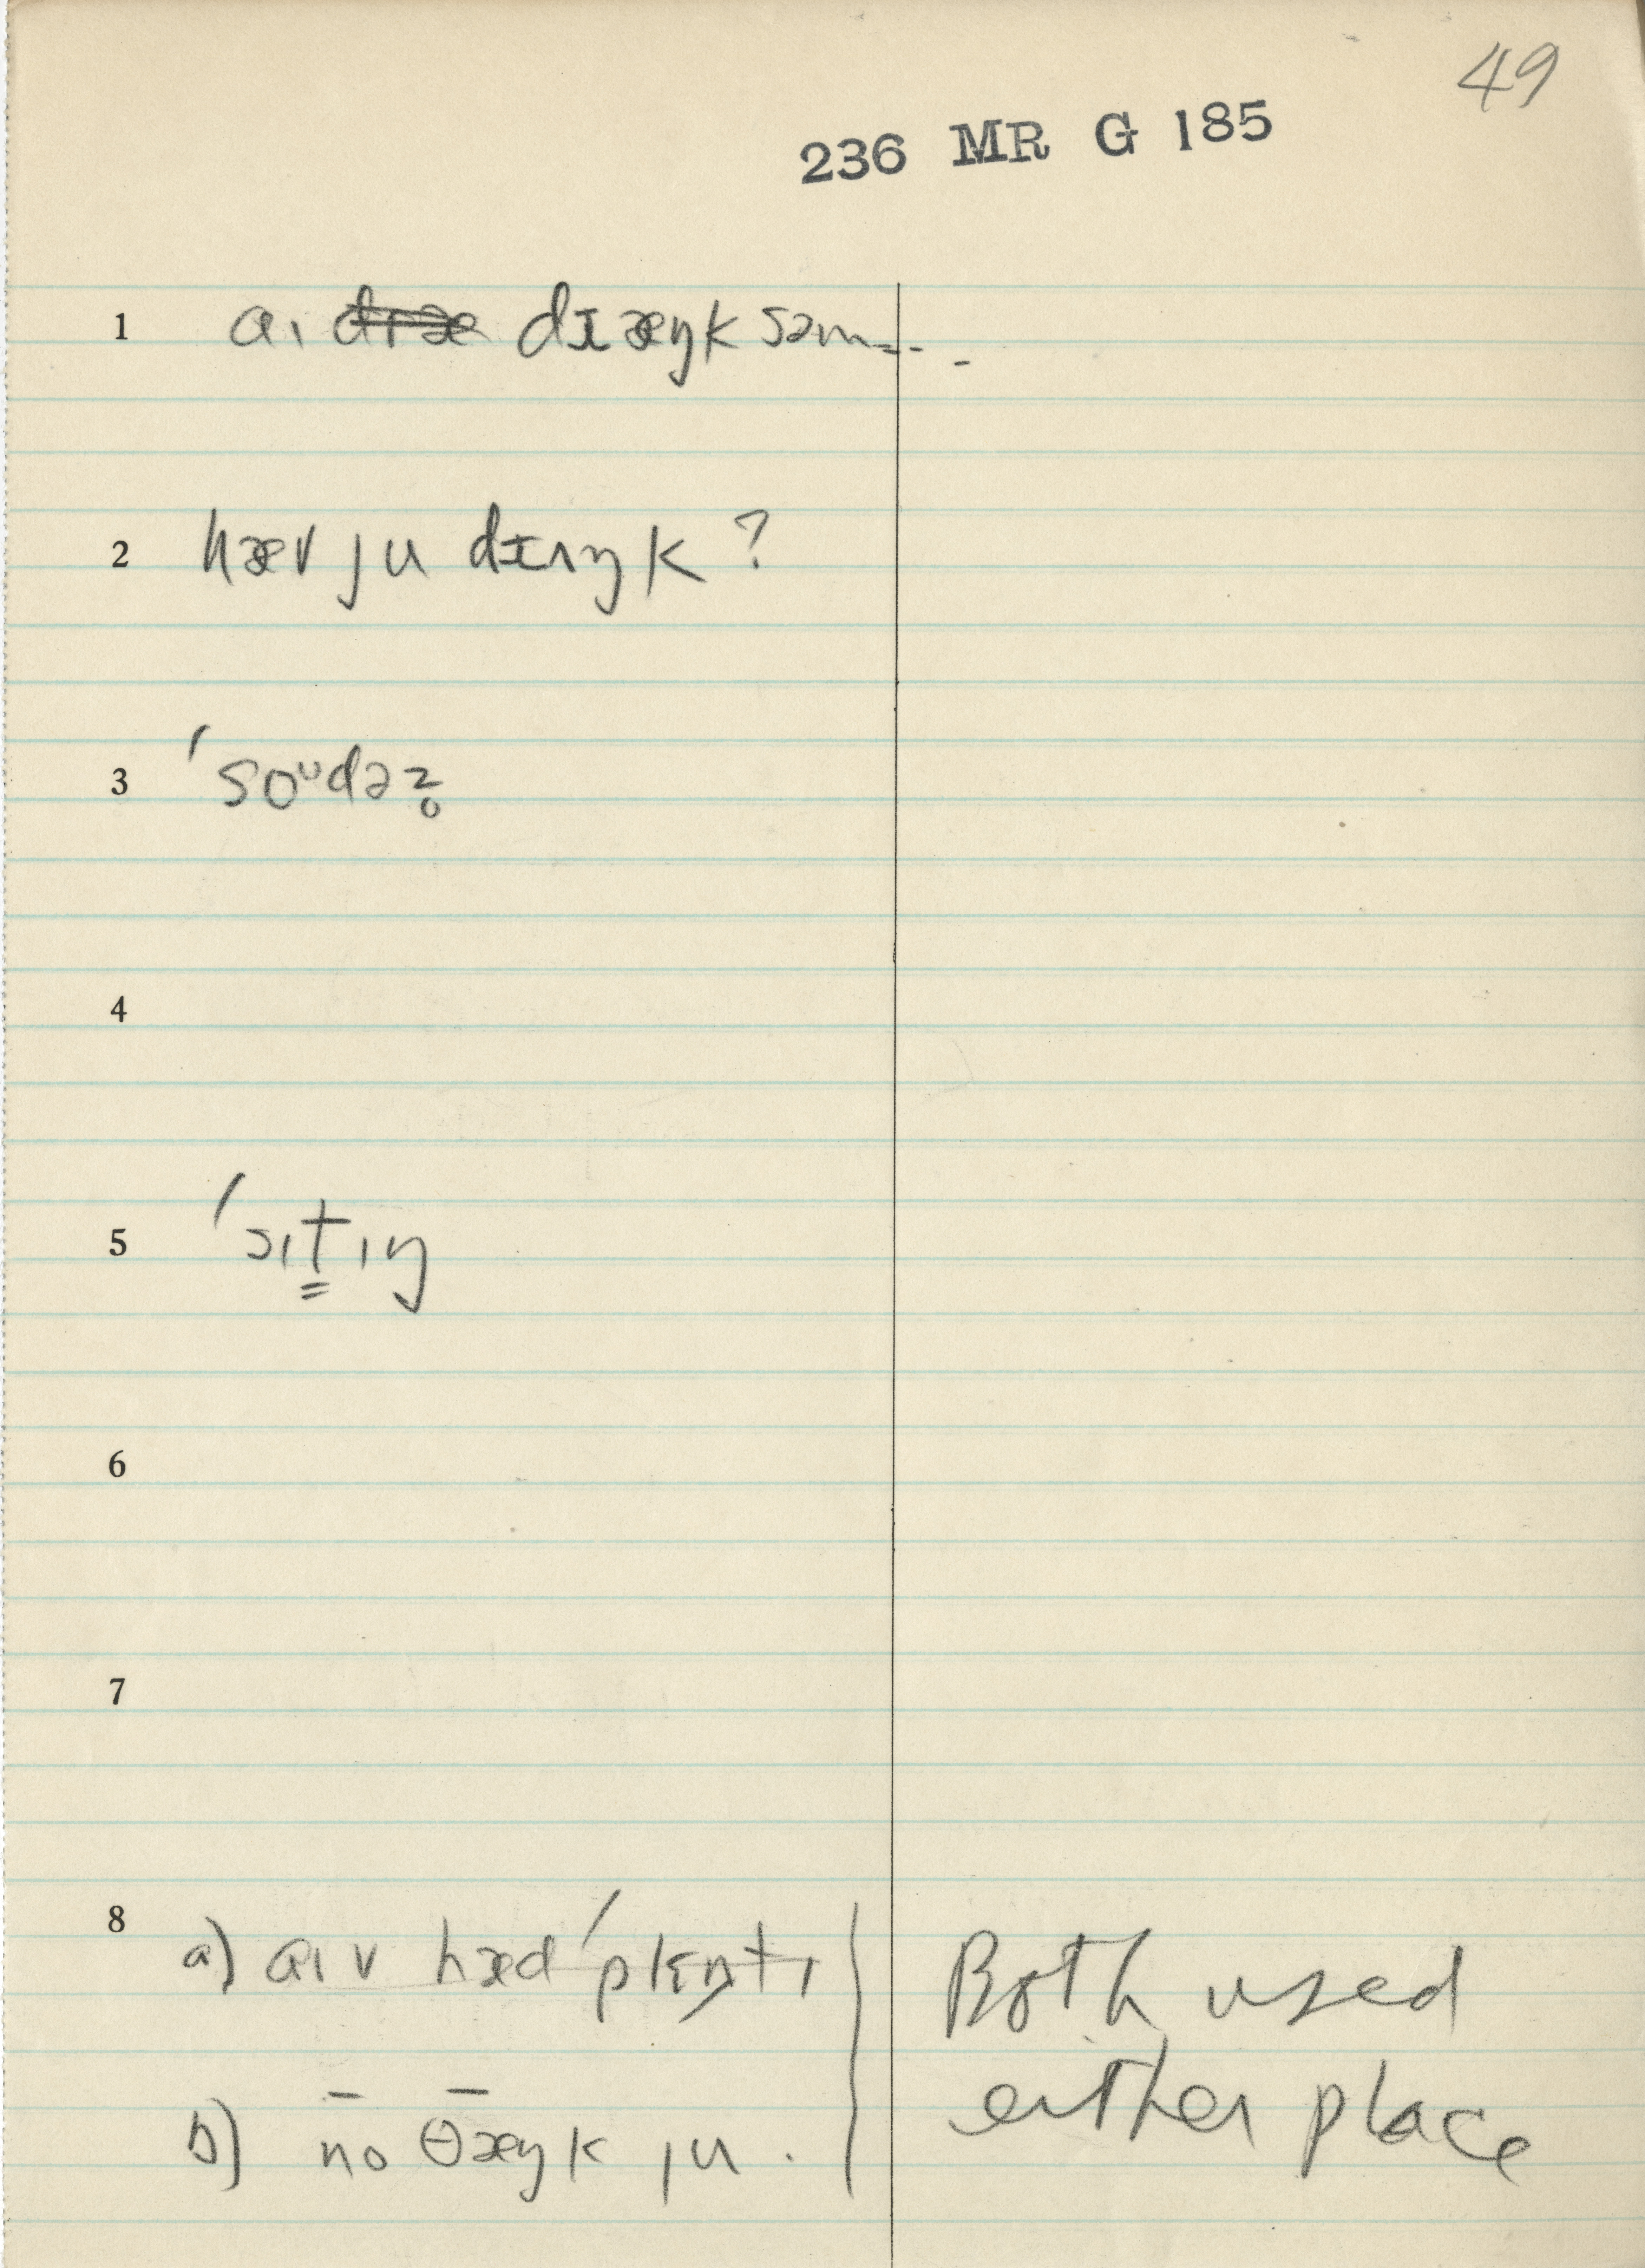 49
236 MR G 185
1 aɪ dɪæŋk səm---
2 hæv ju dɪʌŋk ?
3 ˈsoᶷdəz̥
4
5 ˈsɪt̳ɪŋ
6
7
8 a) aɪv hæd ˈplɛntɪ Both used
b) no θæŋk ju . either place